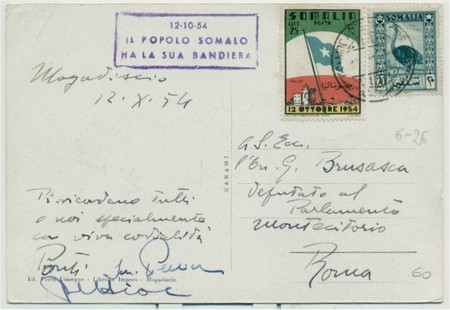 12-10-54
IL POPOLO SOMALO
HA LA SUA BANDIERA
SOMALIA
POSTA
25
12 OTTOBRE 1954
SOMALIA
Mogadiscio
12. X. 54
6-26
a S. Ecc.
l'On. G. Brusasca
deputato al
Parlamento
Montecitorio
Roma
GANAMI
Vi ricordano tutti
e noi specialmente
con viva cordialità
Ponti
Ed. Porro Giuseppe - Libreria Impero - Mogadiscio
60